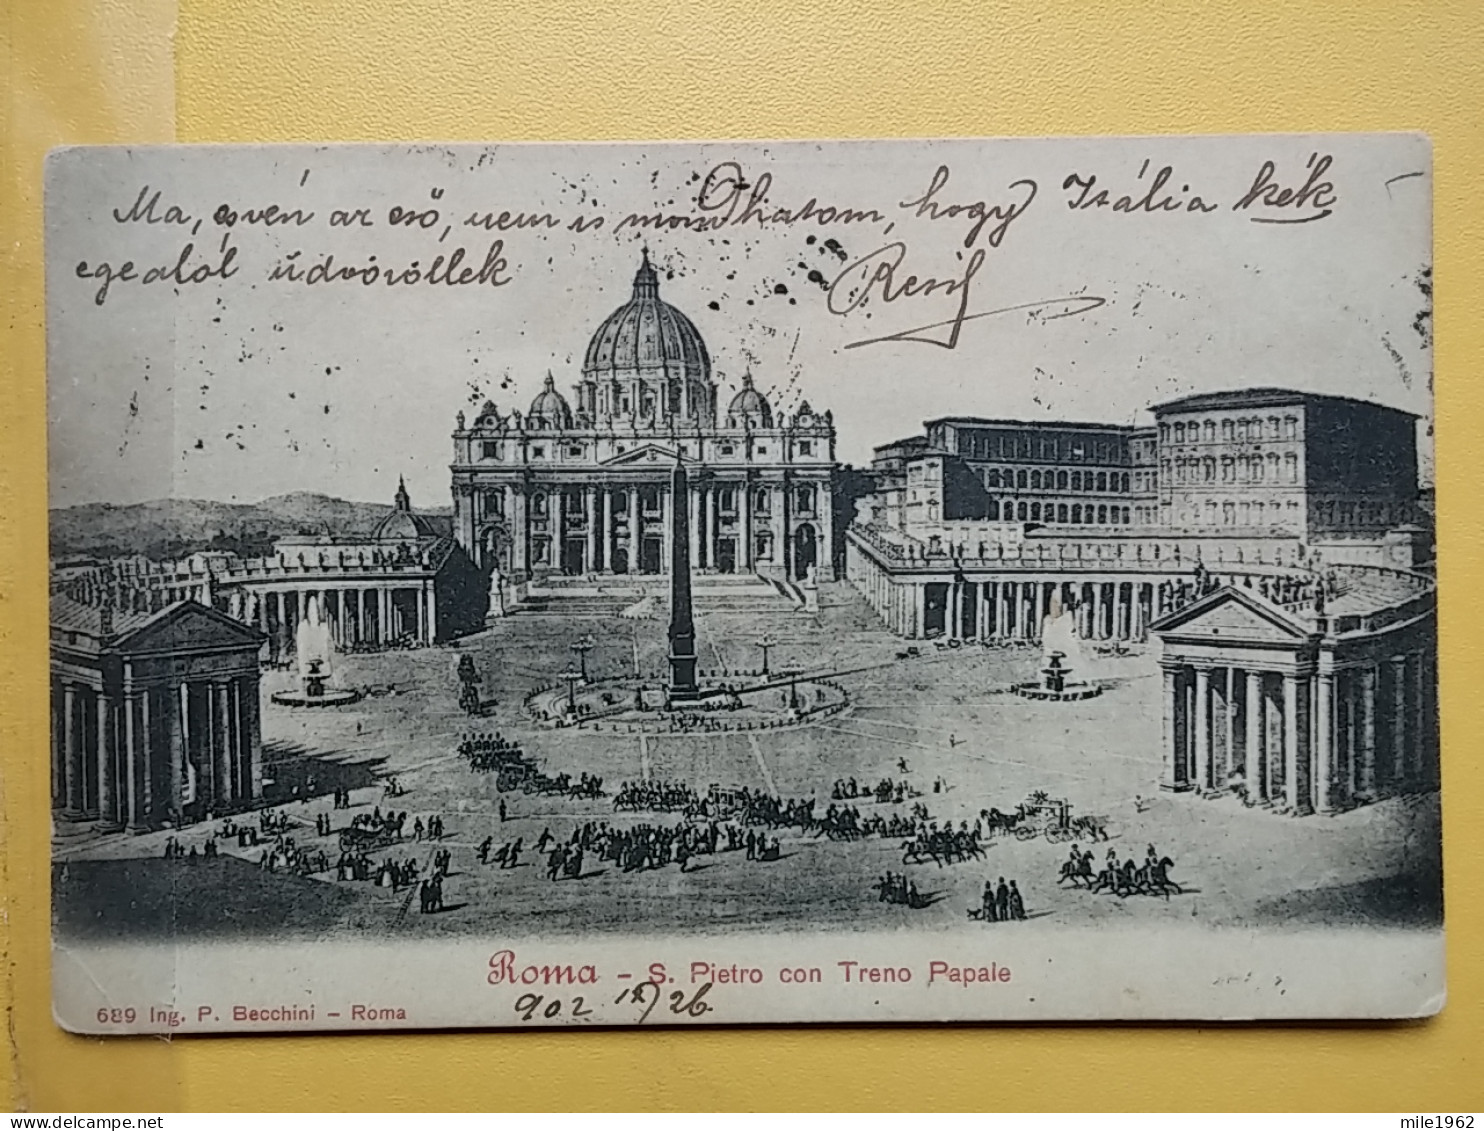 Ma, esvén az eső, nem is mondhatom, hogy Itália kék
egealól üdvözöllek
Roma - S. Pietro con Treno Papale
902 12/26
689 Ing. P. Becchini - Roma
mile1962